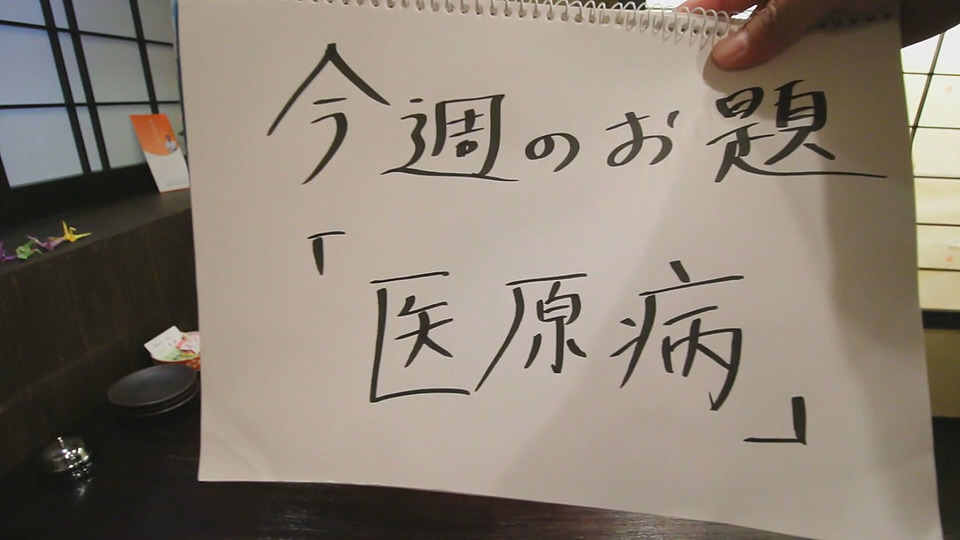 今週のお題
「医原病」